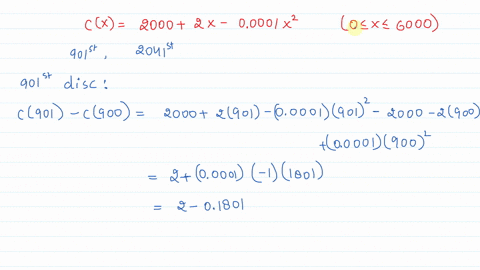 C(x) = 2000 + 2x - 0.0001x² (0≤x≤6000)
901ˢᵗ, 2041ˢᵗ
901ˢᵗ disc:
C(901) - C(900) = 2000 + 2(901) - (0.0001)(901)² - 2000 - 2(900)
+(0.0001)(900)²
= 2 + (0.0001)(-1)(1801)
= 2 - 0.1801